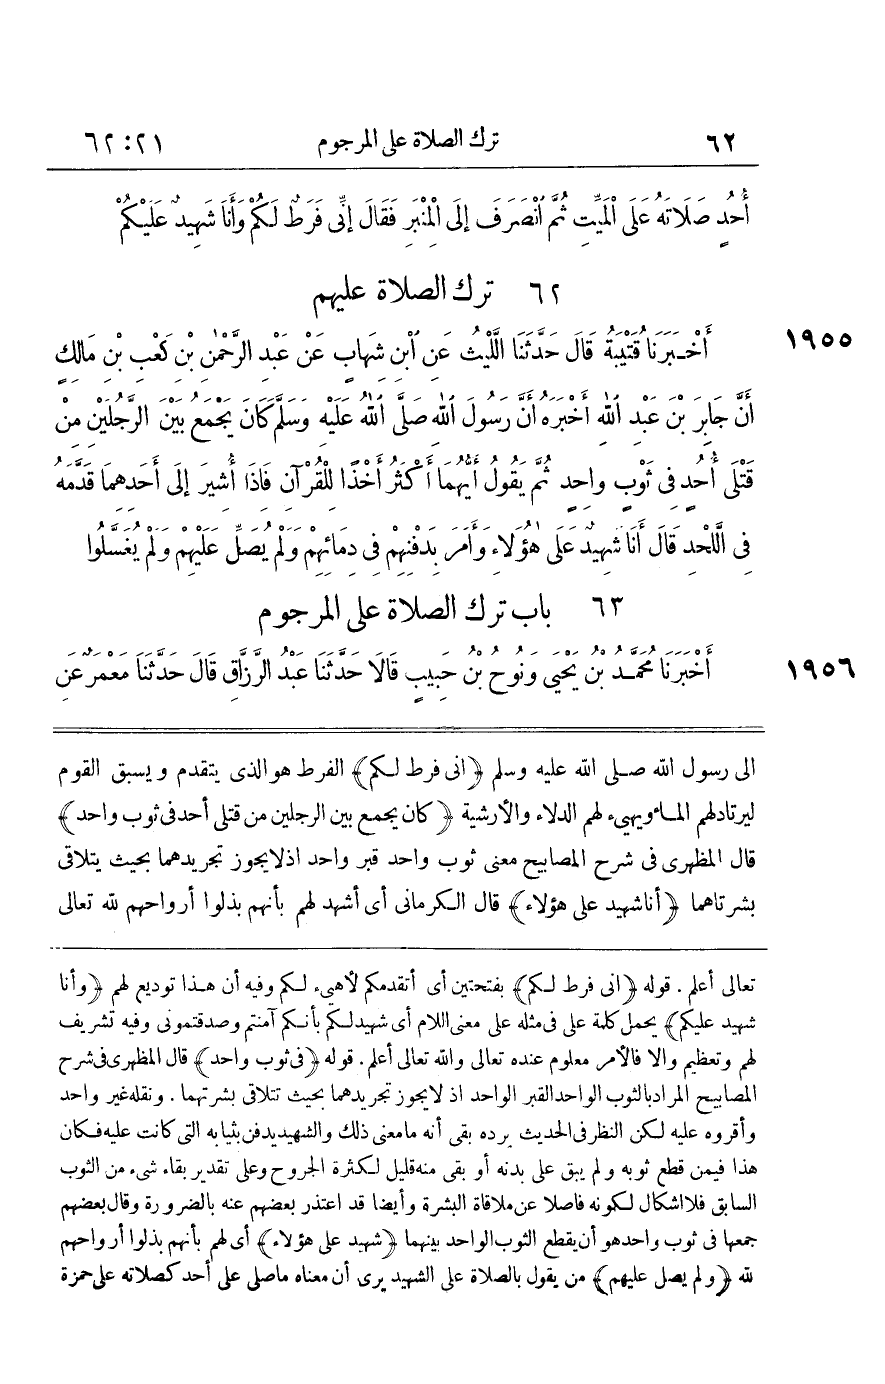 ٦٢ ترك الصلاة على المرجوم ٢١ : ٦٢
أُحُدٍ صَلَاتَهُ عَلَى الْمَيِّتِ ثُمَّ انْصَرَفَ إِلَى الْمِنْبَرِ فَقَالَ إِنِّى فَرَطٌ لَكُمْ وَأَنَا شَهِيدٌ عَلَيْكُمْ
٦٢ ترك الصلاة عليهم
١٩٥٥ أَخْبَرَنَا قُتَيْبَةُ قَالَ حَدَّثَنَا اللَّيْثُ عَنِ ابْنِ شِهَابٍ عَنْ عَبْدِ الرَّحْمٰنِ بْنِ كَعْبِ بْنِ مَالِكٍ
أَنَّ جَابِرَ بْنَ عَبْدِ اللهِ أَخْبَرَهُ أَنَّ رَسُولَ اللهِ صَلَّى اللهُ عَلَيْهِ وَسَلَّمَ كَانَ يَجْمَعُ بَيْنَ الرَّجُلَيْنِ مِنْ
قَتْلَى أُحُدٍ فِى ثَوْبٍ وَاحِدٍ ثُمَّ يَقُولُ أَيُّهُمَا أَكْثَرُ أَخْذًا لِلْقُرْآنِ فَاذَا أُشِيرَ إِلَى أَحَدِهِمَا قَدَّمَهُ
فِى اللَّحْدِ قَالَ أَنَا شَهِيدٌ عَلَى هٰؤُلَاءِ وَأَمَرَ بِدَفْنِهِمْ فِى دِمَائِهِمْ وَلَمْ يُصَلِّ عَلَيْهِمْ وَلَمْ يُغَسَّلُوا
٦٣ باب ترك الصلاة على المرجوم
١٩٥٦ أَخْبَرَنَا مُحَمَّدُ بْنُ يَحْيَى وَنُوحُ بْنُ حَبِيبٍ قَالَا حَدَّثَنَا عَبْدُ الرَّزَّاقِ قَالَ حَدَّثَنَا مَعْمَرٌ عَنِ
الى رسول الله صلى الله عليه وسلم ﴿انى فرط لكم﴾ الفرط هو الذى يتقدم ويسبق القوم
ليرتاد لهم الماء ويهيء لهم الدلاء والأرشية ﴿كان يجمع بين الرجلين من قتلى أحد فى ثوب واحد﴾
قال المظهرى فى شرح المصابيح معنى ثوب واحد قبر واحد اذ لا يجوز تجريدهما بحيث يتلاقى
بشرتاهما ﴿أنا شهيد على هؤلاء﴾ قال الكرمانى أى أشهد لهم بأنهم بذلوا أرواحهم لله تعالى
تعالى أعلم . قوله ﴿انى فرط لكم﴾ بفتحتين أى أتقدمكم لأهيء لكم وفيه أن هذا توديع لهم ﴿وأنا
شهيد عليكم﴾ يحمل كلمة على فى مثله على معنى اللام أى شهيد لكم بأنكم آمنتم وصدقتمونى وفيه تشريف
لهم وتعظيم والا فالأمر معلوم عنده تعالى والله تعالى أعلم . قوله ﴿فى ثوب واحد﴾ قال المظهرى فى شرح
المصابيح المراد بالثوب الواحد القبر الواحد اذ لا يجوز تجريدهما بحيث تتلاقى بشرتهما . ونقله غير واحد
وأقروه عليه لكن النظر فى الحديث يرده بقى أنه ما معنى ذلك والشهيد يدفن بثيابه التى كانت عليه فكان
هذا فيمن قطع ثوبه ولم يبق على بدنه أو بقى منه قليل لكثرة الجروح وعلى تقدير بقاء شىء من الثوب
السابق فلا اشكال لكونه فاصلا عن ملاقاة البشرة وأيضا قد اعتذر بعضهم عنه بالضرورة وقال بعضهم
جمعها فى ثوب واحد هو أن يقطع الثوب الواحد بينهما ﴿شهيد على هؤلاء﴾ أى لهم بأنهم بذلوا أرواحهم
لله ﴿ولم يصل عليهم﴾ من يقول بالصلاة على الشهيد يرى أن معناه ما صلى على أحد كصلاته على حمزة